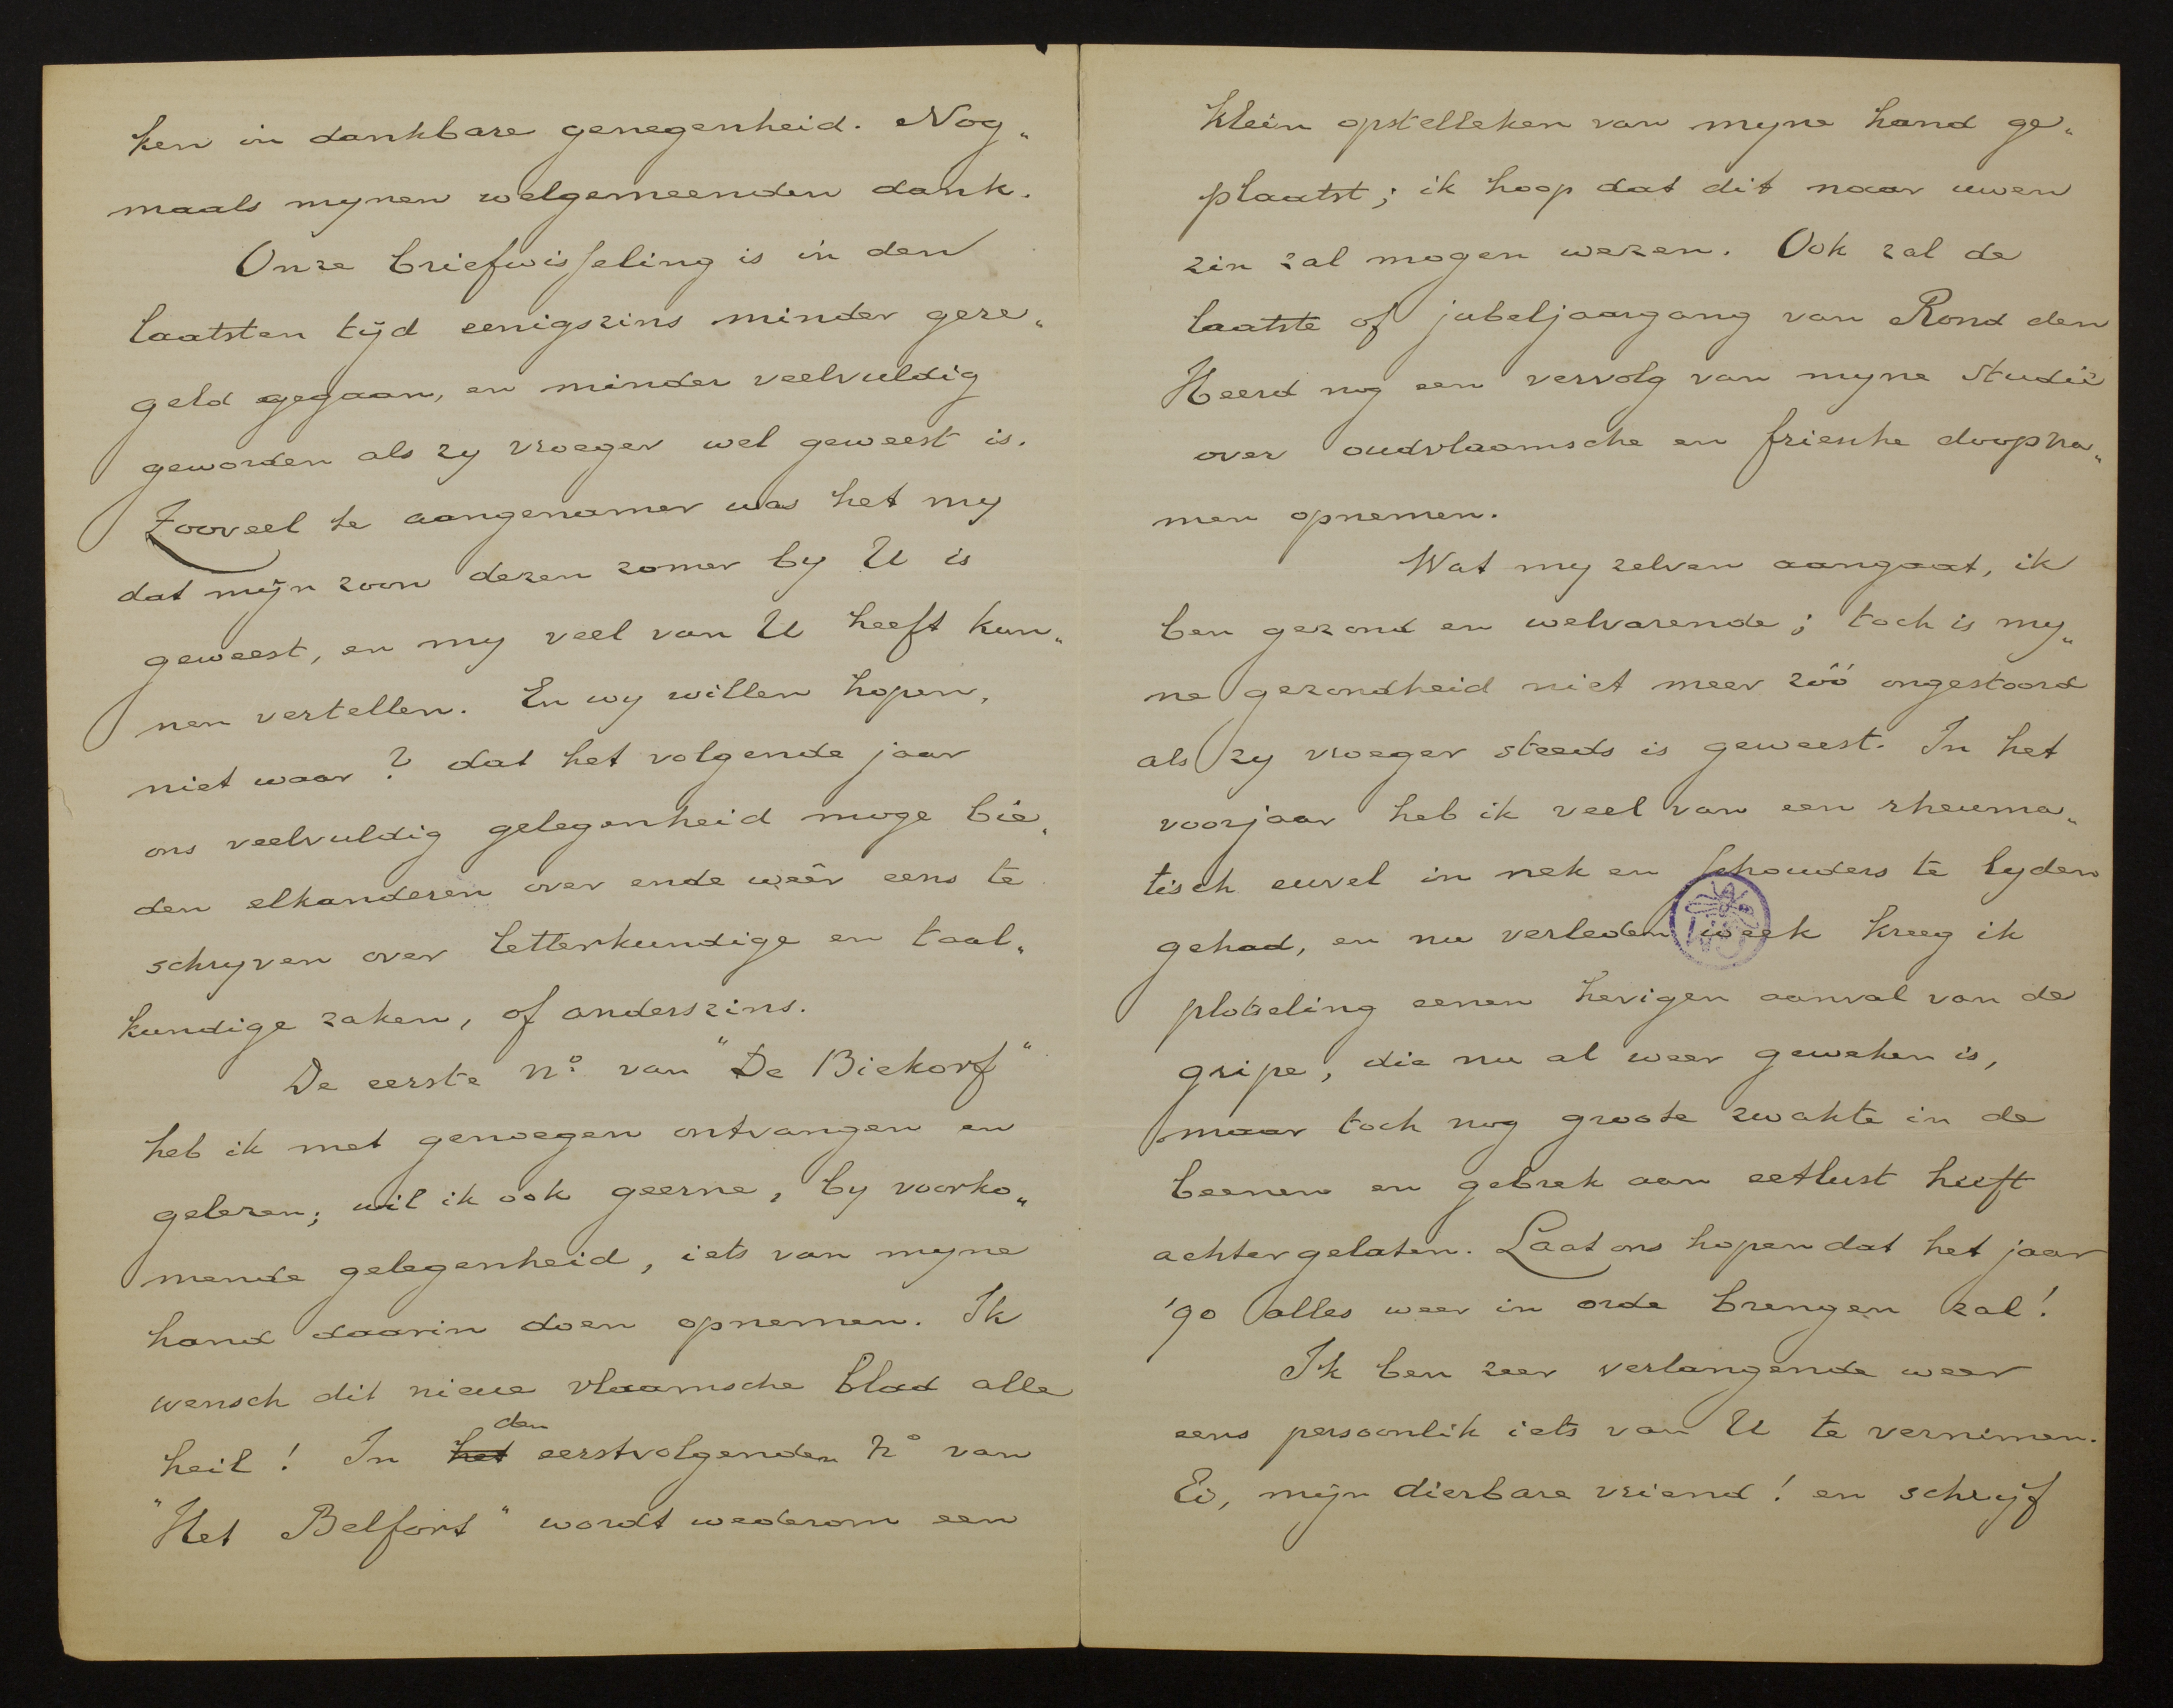 ken in dankbare genegenheid. Nog„
maals mynen welgemeenden dank.
Onze briefwisseling is in den
laatsten tijd eenigszins minder gere„
geld gegaan, en minder veelvuldig
geworden als zy vroeger wel geweest is.
Zooveel te aangenamer was het my
dat mijn zoon dezen zomer by U is
geweest, en my veel van U heeft kun„
nen vertellen. En wy willen hopen,
niet waar? dat het volgende jaar
ons veelvuldig gelegenheid moge bie„
den elkanderen over ende weêr eens te
schryven over letterkundige en taal„
kundige zaken, of anderszins.
De eerste no. van "De Biekorf"
heb ik met genoegen ontvangen en
gelezen; wil ik ook geerne, by voorko„
mende gelegenheid, iets van myne
hand daarin doen opnemen. Ik
wensch dit nieue vlaamsche blad alle
heil! In het den eerstvolgenden no van
"Het Belfort" wordt wederom een
klein opstelleken van myne hand ge„
plaatst; ik hoop dat dit naar uwen
zin zal mogen wezen. Ook zal de
laatste of jubeljaargang van Rond den
Heerd nog een vervolg van myne studie
over oudvlaamsche en friesche doopna„
men opnemen.
Wat my zelven aangaat, ik
ben gezond en welvarende; toch is my„
ne gezondheid niet meer zóó ongestoord
als zy vroeger steeds is geweest. In het
voorjaar heb ik veel van een rheuma„
tisch euvel in nek en schouders te lyden
gehad, en nu verleden week kreeg ik
plotseling eenen hevigen aanval van de
gripe, die nu al weer geweken is,
maar toch nog groote zwakte in de
beenen en gebrek aan eetlust heeft
achtergelaten. Laat ons hopen dat het jaar
'90 alles weer in orde brengen zal!
Ik ben zeer verlangende weer
eens persoonlik iets van U te vernemen.
Ei, mijn dierbare vriend! en schrijf